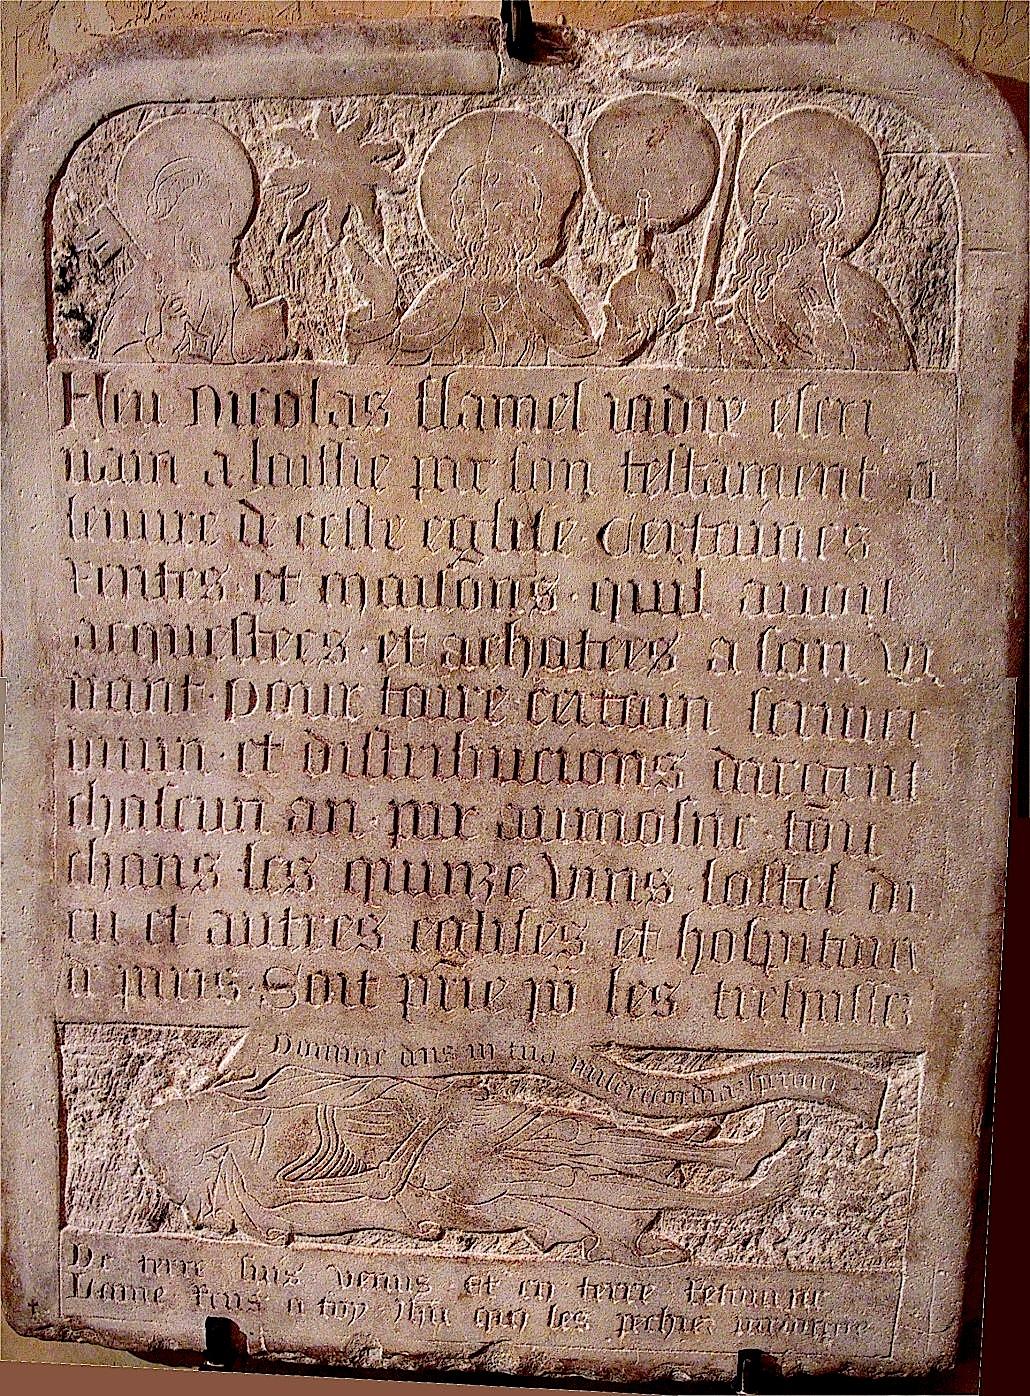 Feu Nicolas flamel iadis escri
uain a laissie par son testament a
leuure de ceste eglise Certaines
rentes et maisons quil auoit
acquestees et achatees a son vi
uant pour faire certain seruice
diuin et distribucions dargent
chascun an par aumosne tou
chans les quinze vins lostel di
eu et autres eglises et hospitaux
a paris Soit prie po les trespasses
Domine deus in tua misericordia speraui
De terre suis venus et en terre retourne
Lame rens a toy ihu qui les pechiez pardonne